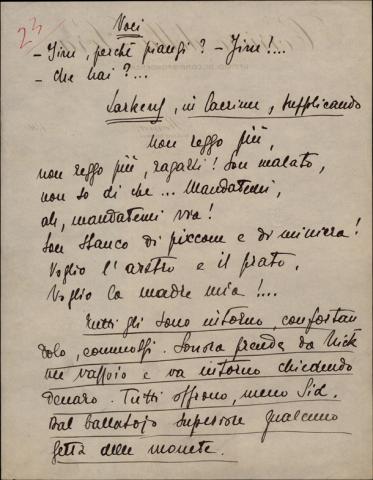 23
Voci
- Jim, perchè piangi? - Jim!...
- che hai?...
Larkens, in lacrime, supplicando
non reggo più,
non reggo più, ragazzi! Son malato,
non so di che... Mandatemi,
ah, mandatemi via!
Son stanco di piccone e di miniera!
Voglio l'aratro e il prato,
Voglio la madre mia!...
Tutti gli sono intorno, confortan
dolo, commossi. Sonora prende da Nick
un vassoio e va intorno chiedendo
denaro. Tutti offrono, meno Sid.
Dal ballatojo superiore qualcuno
getta delle monete.